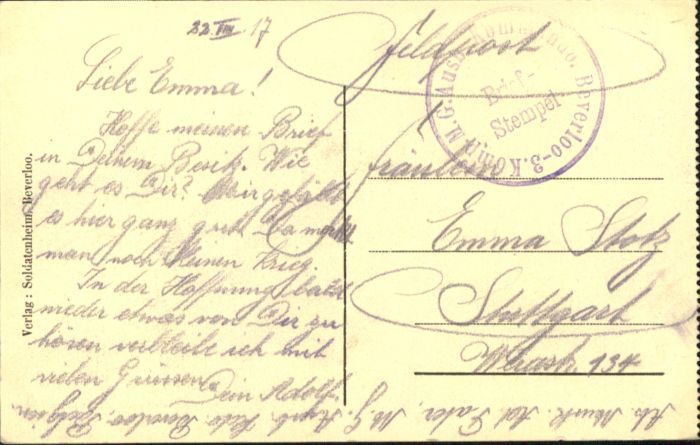 22. VIII. 17
Liebe Emma!
Hoffe meinen Brief
in Deinem Besitz. Wie
geht es Dir? Mir gefällt
es hier ganz gut. Da merkt
man noch keinen Krieg.
In der Hoffnung bald
wieder etwas von Dir zu
hören verbleibe ich mit
vielen Grüssen
Dein Adolf.
Feldpost
Brief-
Stempel
Beverloo-3.
Fräulein
Emma Stolz
Stuttgart
134
Abs. M. G. Beverloo Belgien.
Verlag: Soldatenheim, Beverloo.